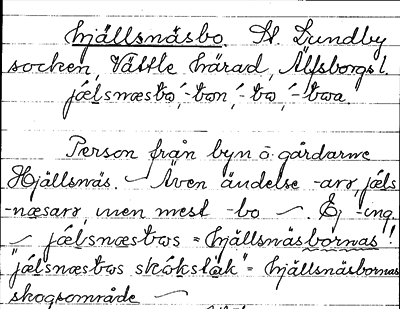 hjällsnäsbo. St. Lundby
socken, Vättle härad, Älfsborgs l.
jǽlsnæsbo, -bon, -bo, -bwa
Person från byn o. gårdarne
Hjällsnäs. – Även ändelse -arə, jæls
-næsarə, men mest -bo –. Ej -ing.
– = hjällsnäsbornas!
= hjällsnäsbornas
skogsområde –